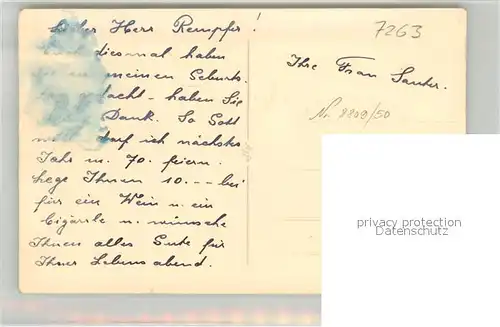 Lieber Herr Rempfer!
diesmal haben
meinen Geburts-
dacht - haben Sie
Dank. So Gott
darf ich nächstes
Jahr m. 70. feiern.
Lege Ihnen 10.-- bei
für ein Wein u. ein
Cigärrle u. wünsche
Ihnen alles Gute für
Ihren Lebensabend.
7263
Ihre Frau Sauter.
Nr. 8809/50
privacy protection
Datenschutz